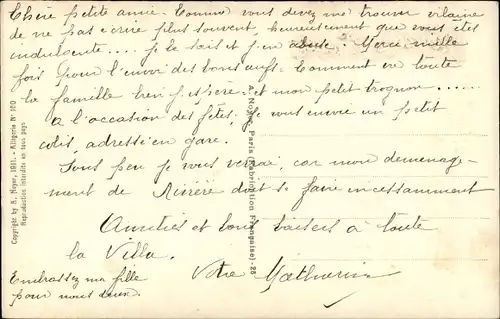 Chère petite amie. Comme vous devez me trouver vilaine
de ne pas écrire plus souvent, heureusement que vous êtes
indulgente.... je le sais et j'en abuse. Merci mille
fois pour l'envoi des bons œufs. Comment va toute
la famille bien j'espère, et mon petit trognon......
à l'occasion des fêtes; je vous envoie un petit
colis, adressé en gare.
Sous peu je vous verrai, car mon déménage-
ment de doit se faire incessamment
Amitiés et bons baisers à toute
la Villa.
Votre
Embrassez ma fille
pour nous deux.
Copyright by A. Noyer, 1911. - Allégorie N° 100
Reproduction interdite en tous pays
A. Noyer, Paris (Fabrication Française) - 28